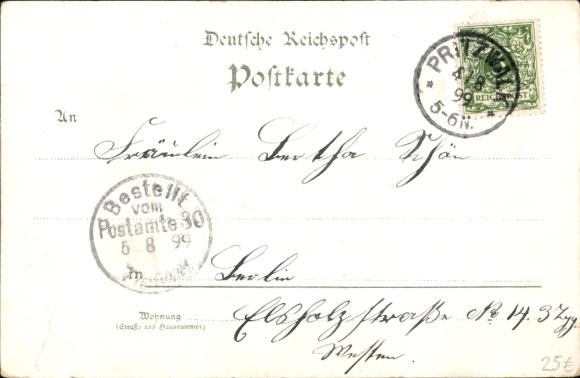 Deutsche Reichspost
Postkarte
PRITZWALK
4/8
99
5-6N.
REICHSPOST
An
Fräulein Bertha Schön
Bestellt
vom
Postamte 30
5 8 99
In
Berlin
Wohnung
(Straße und Hausnummer)
Elsholzstraße No 14. 3 Zyg.
Westen.
25€